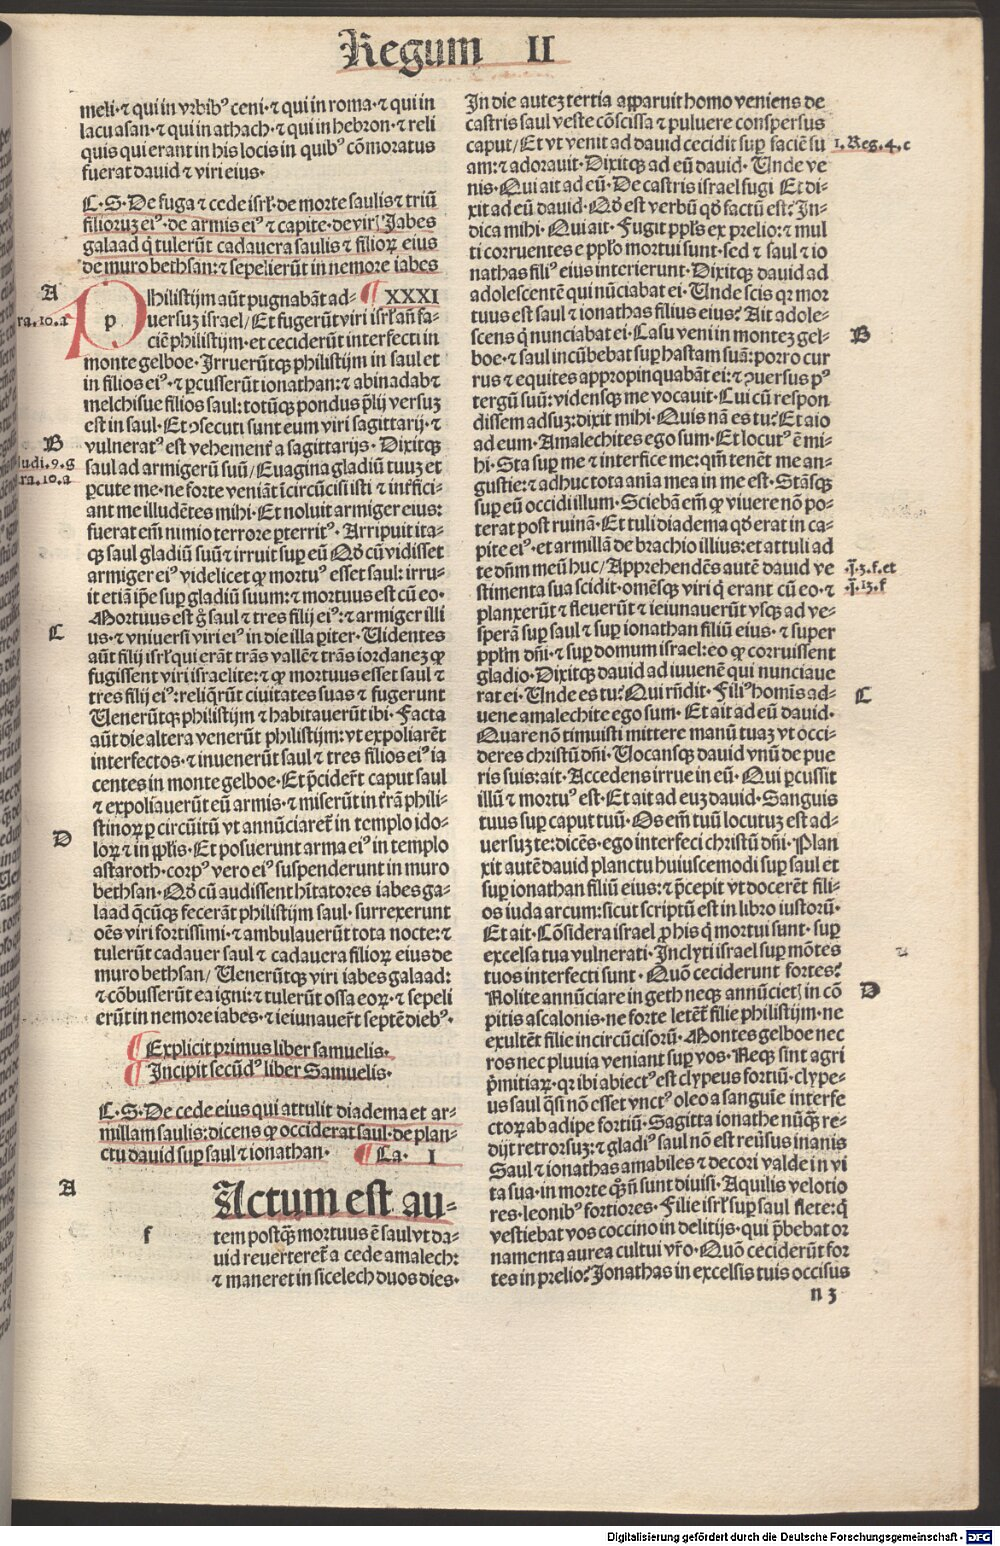 Regum II
meli·⁊ qui in vrbibꝰ ceni·⁊ qui in roma·⁊ qui in
lacu asan·⁊ qui in athach·⁊ qui in hebron·⁊ reli
quis qui erant in his locis in quibꝰ cōmoratus
fuerat dauid ⁊ viri eius·
C·S·De fuga ⁊ cede isrl·de morte saulis ⁊ triū
filioruz eiꝰ·de armis eiꝰ ⁊ capite·de viris Jabes
galaad q̇ tulerūt cadauera saulis ⁊ filioꝝ eius
de muro bethsan:⁊ sepelierūt in nemore iabes
A
ra.10.a
¶ XXXI
p
Philistijm aūt pugnabāt ad-
uersuz israel/Et fugerūt viri isrl̄ añ fa-
ciē philistijm·et ceciderūt interfecti in
monte gelboe·Irruerūtqꝫ philistijm in saul et
in filios eiꝰ·⁊ ꝑcusserūt ionathan:⁊ abinadab ⁊
melchisue filios saul:totūqꝫ pondus p̄lij versuz
est in saul·Et ꝯsecuti sunt eum viri sagittarij·⁊
B
vulneratꝰ est vehemenť a sagittarijs·Dixitqꝫ
iudi.9.g
saul ad armigerū suū/Euagina gladiū tuuz et
ra.10.a
ꝑcute me·ne forte veniāt īcircūcisi isti ⁊ inťfici-
ant me illudētes mihi·Et noluit armiger eius:
fuerat em̄ nimio terrore ꝑterritꝰ·Arripuit ita-
qꝫ saul gladiū suū ⁊ irruit suꝑ eū Qḋ cū vidisset
armiger eiꝰ videlicet ꝙ mortuꝰ esset saul:irru-
it etiā ip̄e suꝑ gladiū suum:⁊ mortuus est cū eo·
Mortuus est g̊ saul ⁊ tres filij eiꝰ:⁊ armiger illi
C
us·⁊ vniuersi viri eiꝰ in die illa ꝑiter·Videntes
aūt filij isrl̄ qui erāt trās vallē ⁊ trās iordanez ꝙ
fugissent viri israelite:⁊ ꝙ mortuus esset saul ⁊
tres filij eiꝰ:reliq̇rūt ciuitates suas ⁊ fugerunt
Uenerūtqꝫ philistijm ⁊ habitauerūt ibi·Facta
aūt die altera venerūt philistijm:vt expoliarēt
interfectos·⁊ inuenerūt saul ⁊ tres filios eiꝰ ia
centes in monte gelboe·Et p̄cideřt caput saul
⁊ expoliauerūt eū armis·⁊ miserūt in ťrā phili-
stinoꝝ ꝑ circūitū vt annūciareť in templo ido-
D
loꝝ ⁊ in ppl̄is·Et posuerunt arma eiꝰ in templo
astaroth·corpꝰ vero eiꝰ suspenderunt in muro
bethsan·Qḋ cū audissent hītatores iabes ga-
laad q̄cūqꝫ fecerāt philistijm saul·surrexerunt
oēs viri fortissimi·⁊ ambulauerūt tota nocte:⁊
tulerūt cadauer saul ⁊ cadauera filioꝝ eius de
muro bethsan/Uenerūtqꝫ viri iabes galaad:
⁊ cōbusserūt ea igni:⁊ tulerūt ossa eoꝝ·⁊ sepeli
erūt in nemore iabes·⁊ ieiunaueřt septē diebꝰ·
¶ Explicit primus liber samuelis·
¶ Incipit secūdꝰ liber Samuelis·
C·S·De cede eius qui attulit diadema et ar-
millam saulis:dicens ꝙ occiderat saul·de plan-
ctu dauid suꝑ saul ⁊ ionathan· ¶ Ca· I
A
f
Actum est au-
tem postqꝫ̄ mortuus ē saul vt da-
uid reuerteret̃ a cede amalech:
⁊ maneret in sicelech duos dies·
In die autez tertia apparuit homo veniens de
castris saul veste cōscissa ⁊ puluere conspersus
caput/Et vt venit ad dauid cecidit suꝑ faciē su
1.Reg.4.c
am:⁊ adorauit·Dixitqꝫ ad eū dauid·Unde ve
nis·Qui ait ad eū·De castris israel fugi Et di-
xit ad eū dauid·Qḋ est verbū qḋ factū est? In-
dica mihi·Qui ait·Fugit ppl̄s ex prelio:⁊ mul
ti corruentes e ppl̄o mortui sunt·sed ⁊ saul ⁊ io
nathas filiꝰ eius interierunt·Dixitqꝫ dauid ad
adolescentē qui nūciabat ei·Unde scis qꝛ mor
tuus est saul ⁊ ionathas filius eius? Ait adole-
scens q̇ nunciabat ei·Casu veni in montez gel-
B
boe·⁊ saul incūbebat suꝑ hastam suā:porro cur
rus ⁊ equites appropinquabāt ei:⁊ ꝯuersus pꝰ
tergū suū:vidensqꝫ me vocauit·Cui cū respon
dissem adsuz:dixit mihi·Quis nā es tu? Et aio
ad eum·Amalechites ego sum·Et locutꝰ ē mi-
hi·Sta suꝑ me ⁊ interfice me:qm̄ tenēt me an-
gustie:⁊ adhuc tota aīa mea in me est·Stāsqꝫ
suꝑ eū occidi illum·Sciebā em̄ ꝙ viuere nō po-
terat post ruinā·Et tuli diadema qḋ erat in ca-
pite eiꝰ·et armillā de brachio illius:et attuli ad
te dn̄m meū huc/Apprehendēs autē dauid ve
.ij.3.f.et
stimenta sua scidit·omēsqꝫ viri q̇ erant cū eo·⁊
.ij.13.f
planxerūt ⁊ fleuerūt ⁊ ieiunauerūt vsqꝫ ad ve-
sperā suꝑ saul ⁊ suꝑ ionathan filiū eius·⁊ super
ppl̄m dn̄i·⁊ suꝑ domum israel:eo ꝙ corruissent
gladio·Dixitqꝫ dauid ad iuuenē qui nunciaue
rat ei·Unde es tu? Qui rn̄dit·Filiꝰ hoīs ad-
C
uene amalechite ego sum·Et ait ad eū dauid·
Quare nō timuisti mittere manū tuaz vt occi-
deres christū dn̄i·Uocansqꝫ dauid vnū de pue
ris suis:ait·Accedens irrue in eū·Qui ꝑcussit
illū ⁊ mortuꝰ est·Et ait ad euz dauid·Sanguis
tuus suꝑ caput tuū·Os em̄ tuū locutuz est ad-
uersuz te:dicēs·ego interfeci christū dn̄i·Plan
xit autē dauid planctu huiuscemodi suꝑ saul et
suꝑ ionathan filiū eius:⁊ p̄cepit vt docerēt fili-
os iuda arcum:sicut scriptū est in libro iustorū·
Et ait·Cōsidera israel ꝓ his q̇ mortui sunt·suꝑ
excelsa tua vulnerati·Inclyti israel suꝑ mōtes
tuos interfecti sunt·Quō ceciderunt fortes?
Nolite annūciare in geth neqꝫ annūcietis in cō
D
pitis ascalonis·ne forte letēť filie philistijm·ne
exultēt filie incircūcisorū·Montes gelboe nec
ros nec pluuia veniant suꝑ vos·Neqꝫ sint agri
p̄mitiaꝝ·qꝛ ibi abiectꝰ est clypeus fortiū·clype-
us saul q̄si nō esset vnctꝰ oleo a sanguīe interfe
ctoꝝ ab adipe fortiū·Sagitta ionathe nūqꝫ̄ re-
dijt retrorsuz:⁊ gladiꝰ saul nō est reūsus inanis
Saul ⁊ ionathas amabiles ⁊ decori valde in vi
ta sua·in morte qꝫ̄ n̄ sunt diuisi·Aquilis velotio
res·leonibꝰ fortiores·Filie isrl̄ suꝑ saul flete:q̇
vestiebat vos coccino in delitijs·qui p̄bebat or
namenta aurea cultui vr̄o·Quō ceciderūt for
tes in prelio? Jonathas in excelsis tuis occisus
n 3
Digitalisierung gefördert durch die Deutsche Forschungsgemeinschaft · DFG